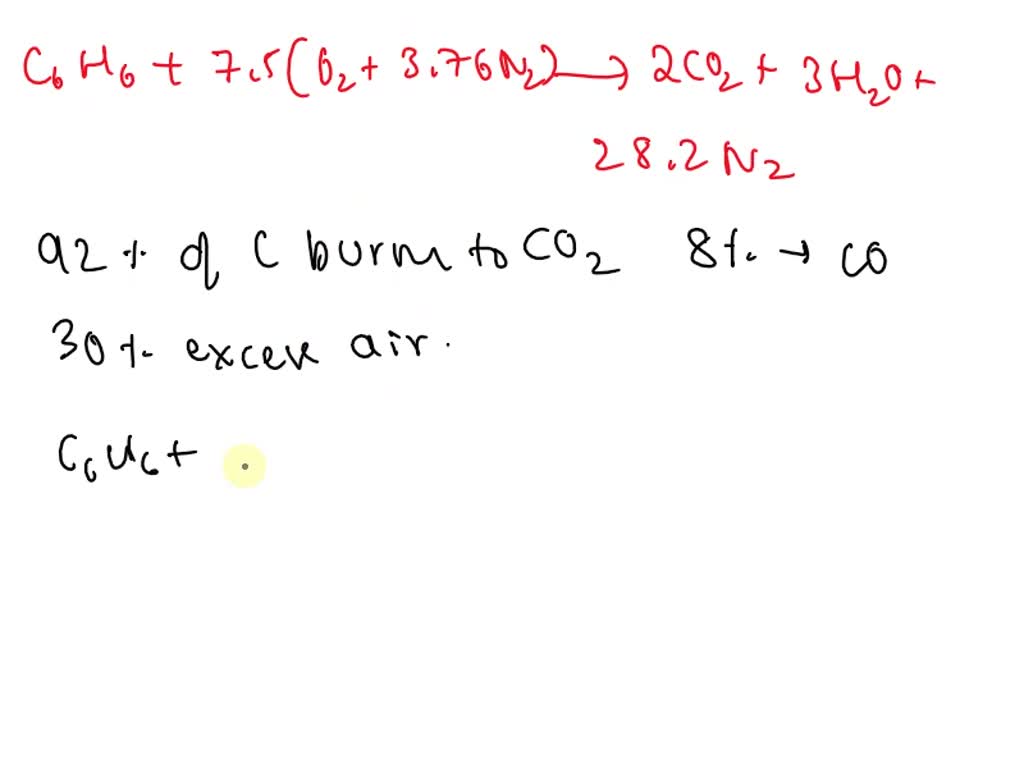 C6H6 + 7.5(O2 + 3.76N2) → 2CO2 + 3H2O +
28.2 N2
92 % of C burn to CO2 8% → CO
30 % excess air.
C6H6 +